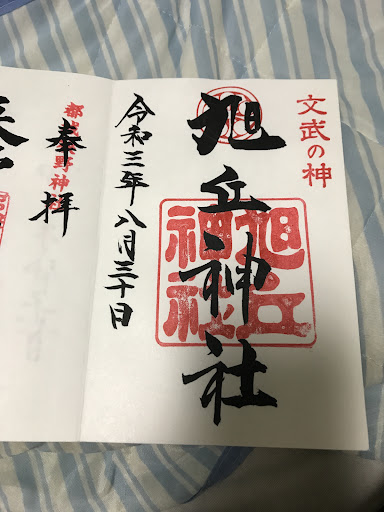 文武の神
旭丘神社
旭丘
神社
令和三年八月三十日
奉拝
野神